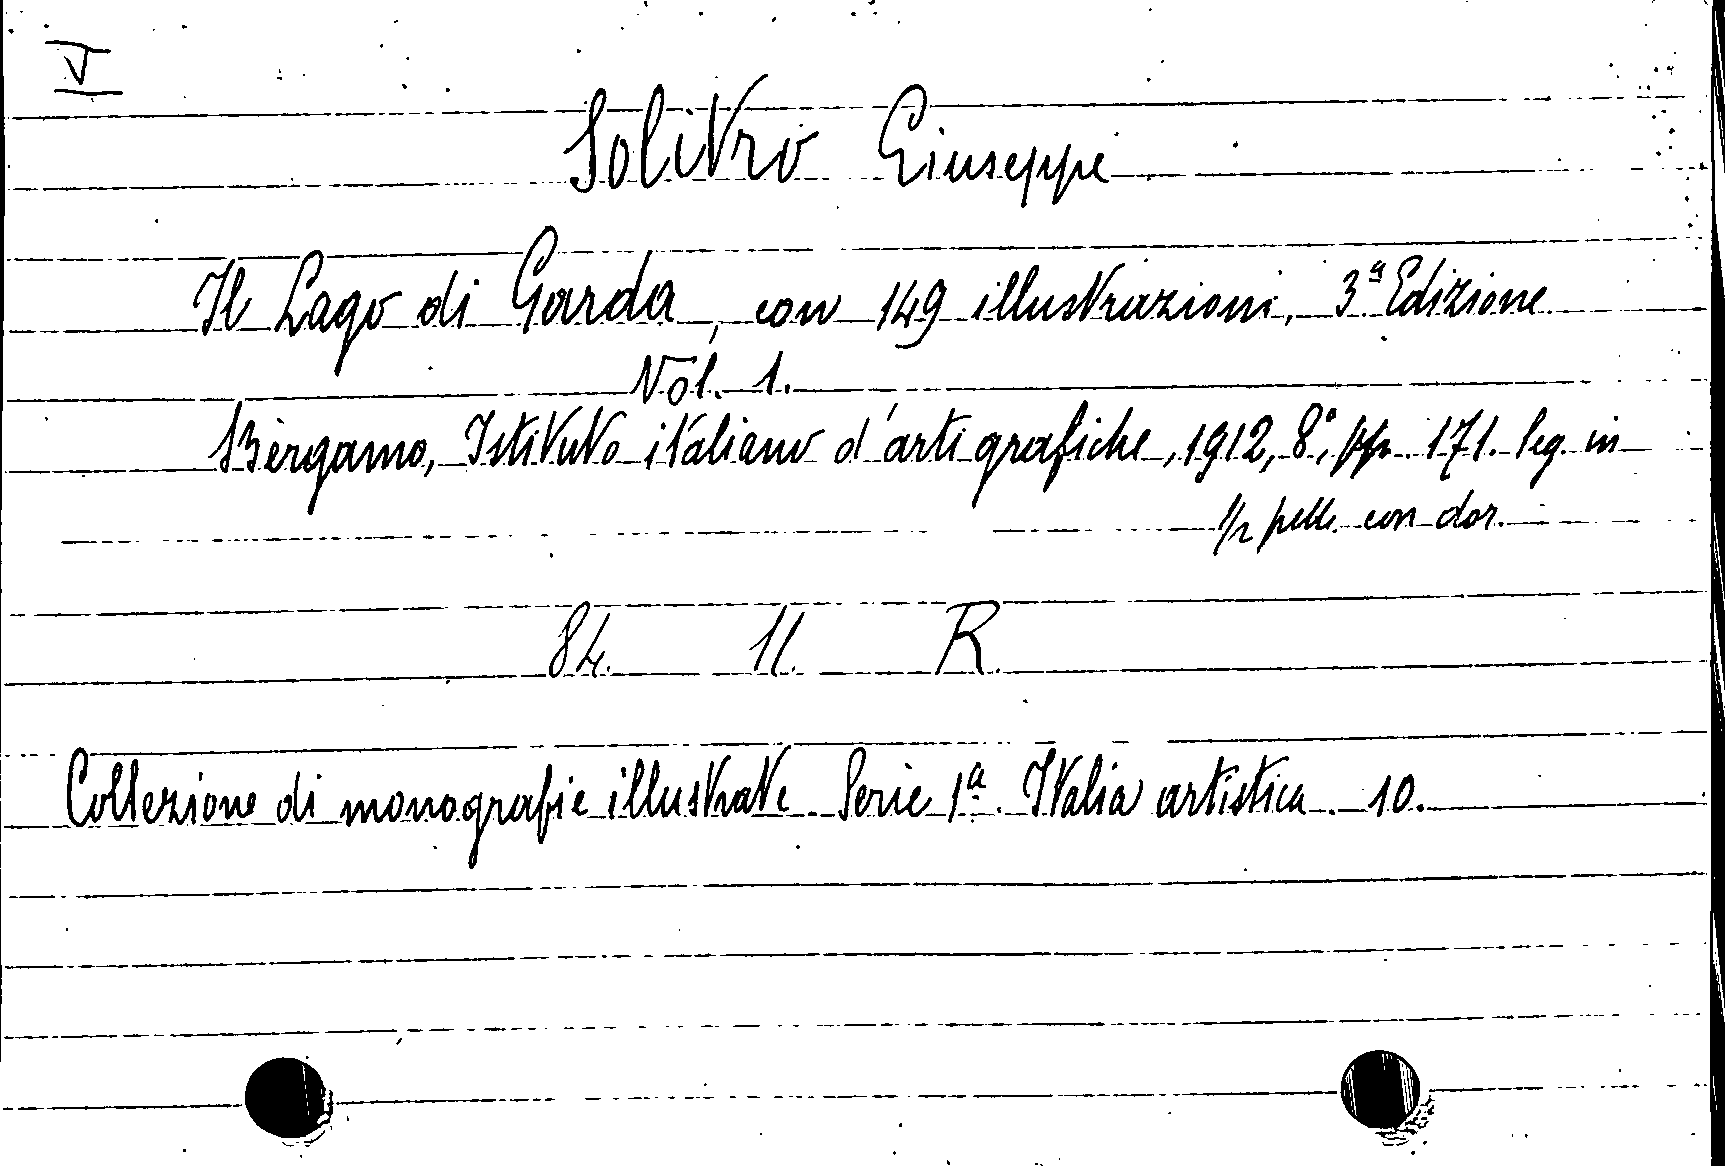 V
Solitro Giuseppe
Il Lago di Garda, con 149 illustrazioni, 3ª Edizione
Vol. 1.
Bergamo, Istituto italiano d'arti grafiche, 1912, 8°, pp. 171. leg. in
1/2 pelle con dor.
84. 11. R.
Collezione di monografie illustrate. Serie 1ª. Italia artistica. 10.